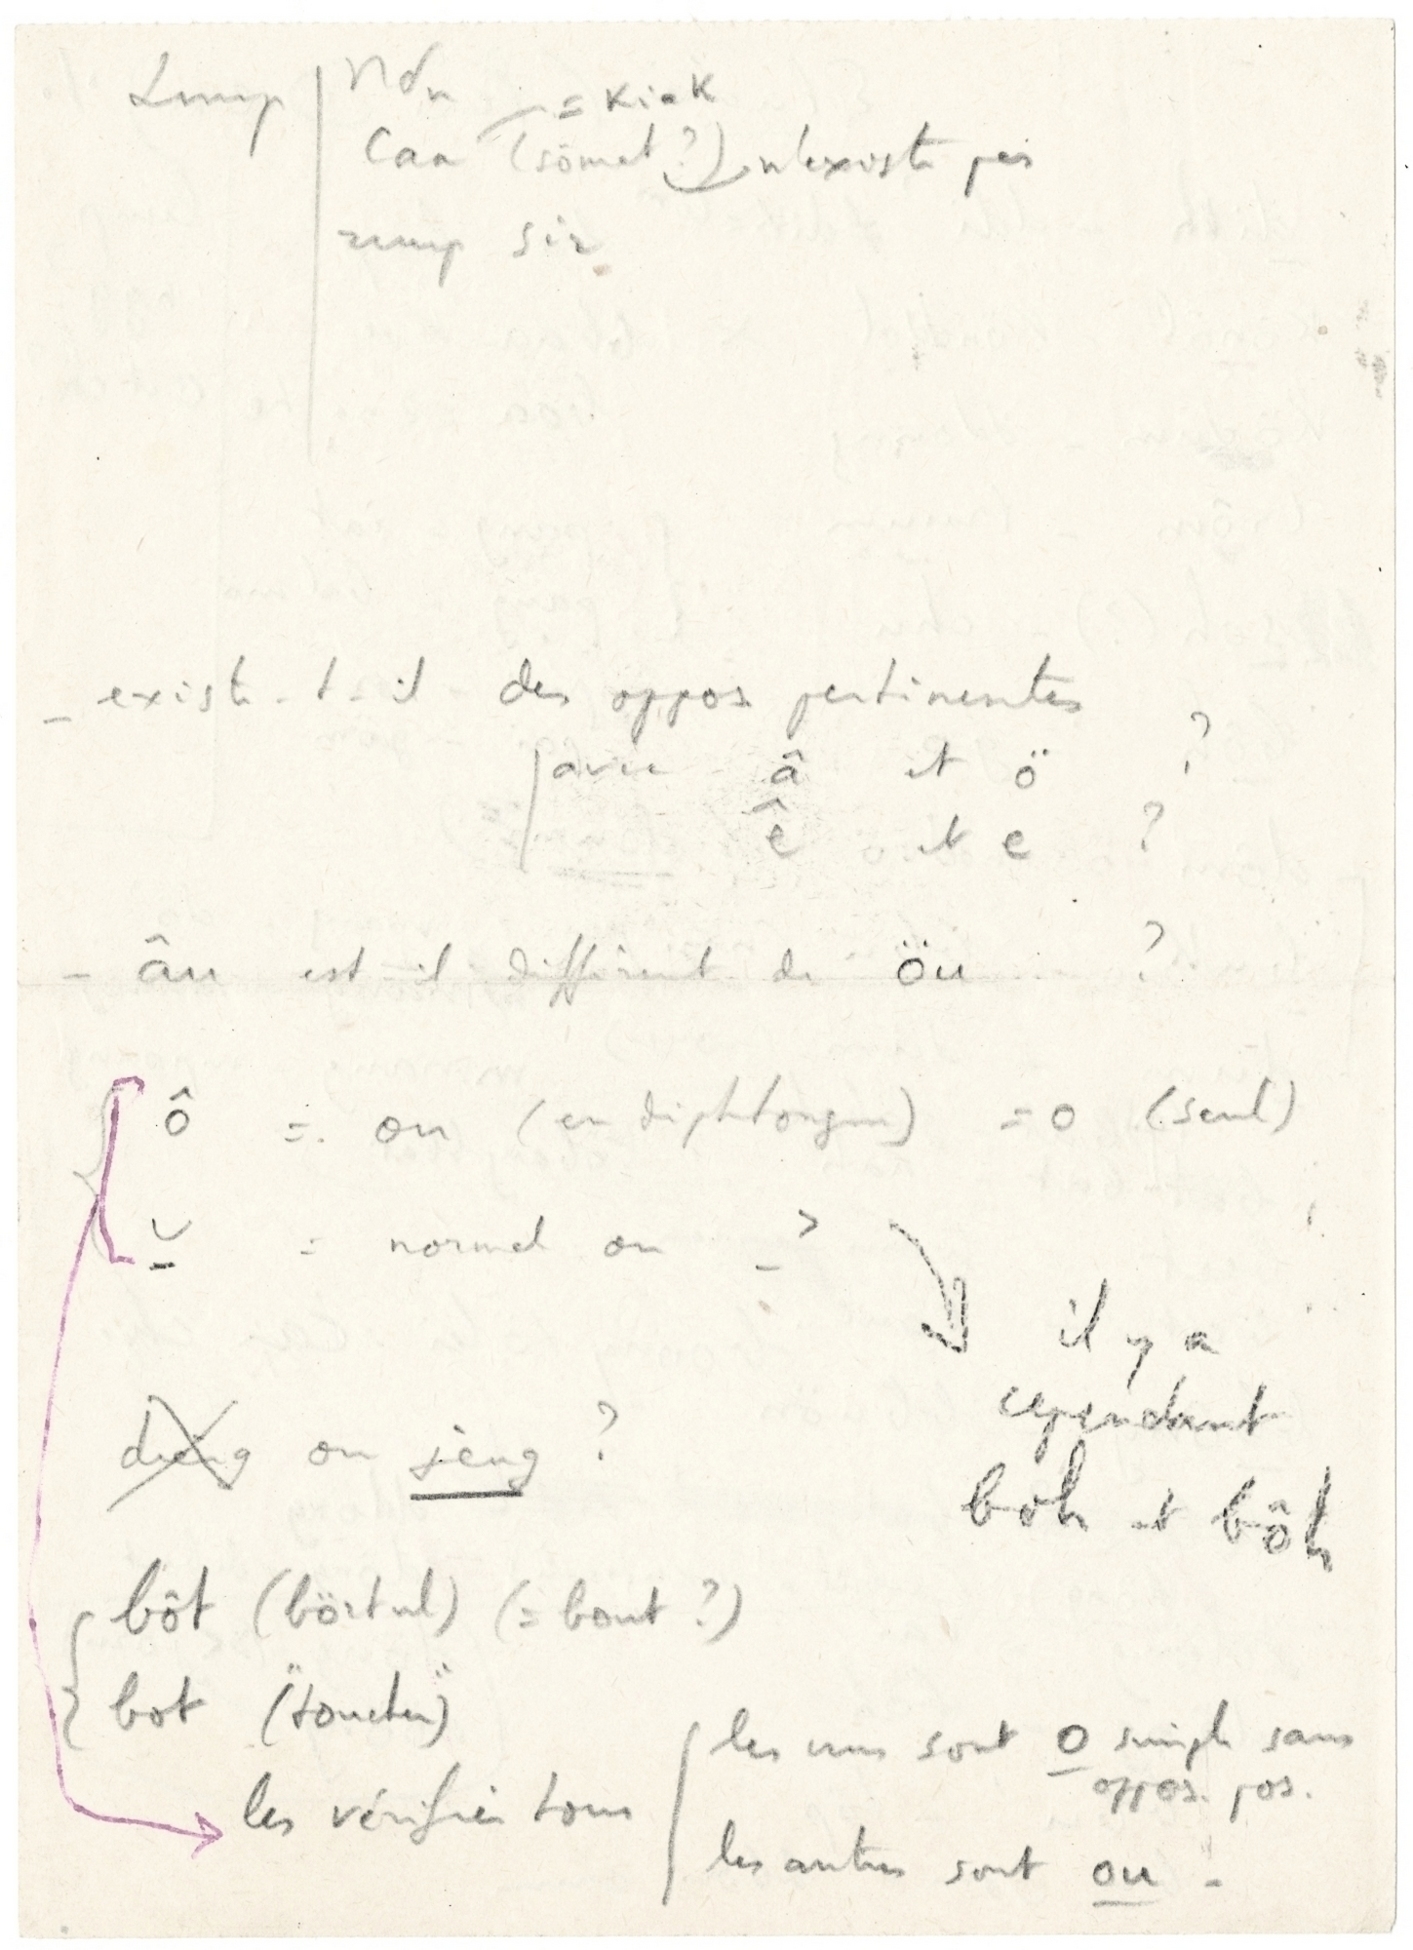 Lump
Nön
= Kiak
Can (sömat ?) n'existe pas
rump sir
- existe-t-il des oppos pertinentes
avec â et ö ?
ê et e ?
- âu est-il différent de öu ?
ô = ou (en diphtongue) = o (seul)
normal ou
il y a
cependant
boh et bôh
dieng ou jêng ?
bôt (börtul) (= bout ?)
bot ("toucher")
les vérifier tous
les uns sont o simple sans
oppos. pos.
les autres sont ou -